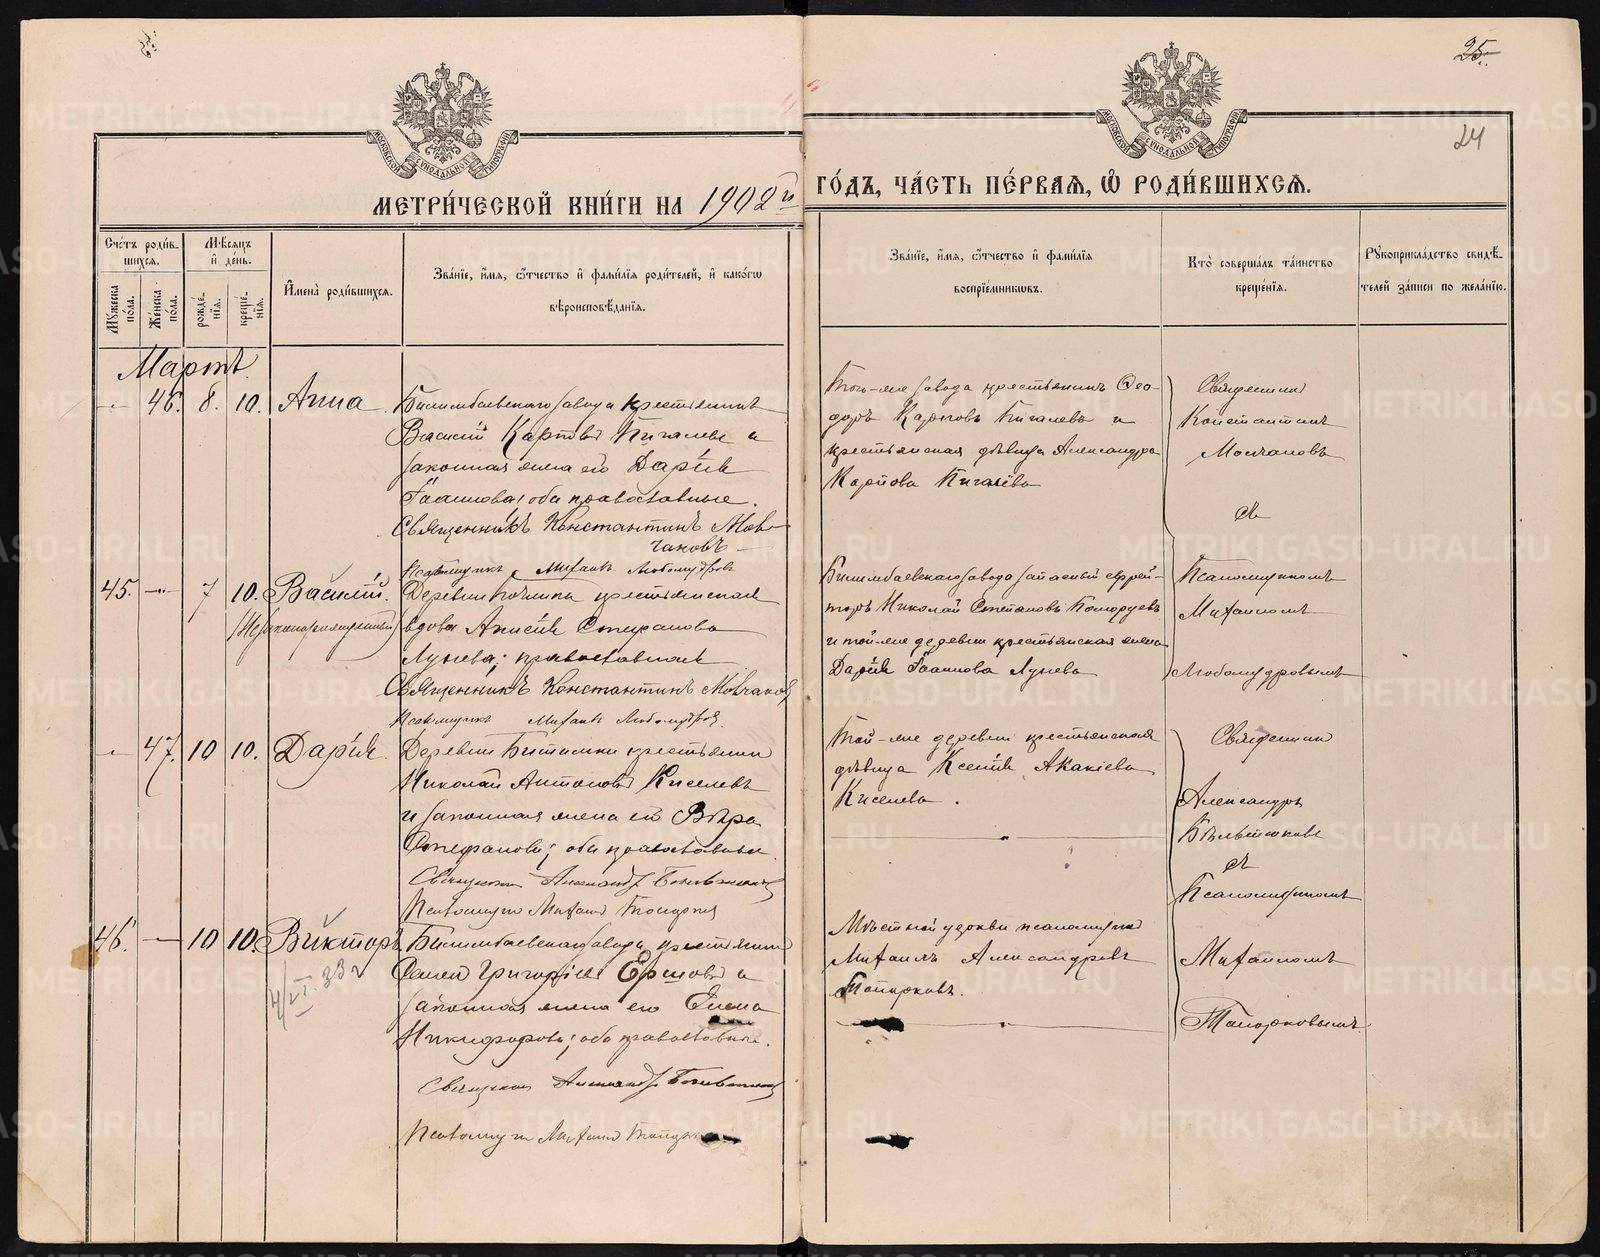 25.
24
МЕТРИ́ЧЕСКОЙ КНИ́ГИ НА 1902й ГО́ДЪ, ЧА́СТЬ ПЕ́РВАЯ, Ѡ РОДИ́ВШИХСЯ.
Сче́тъ роди́вшихся.
Мѣ́сяцъ и де́нь.
Му́жеска по́ла.
Же́нска по́ла.
рожде́нїя.
креще́нїя.
Имена̀ роди́вшихся.
Зва́нїе, и́мя, ѻ́тчество и фами́лїя роди́телей, и како́гѡ
вѣроисповѣ́данїя.
Зва́нїе, и́мя, ѻ́тчество и фами́лїя
воспрїе́мниковъ.
Кто̀ соверша́лъ та́инство
креще́нїя.
Рукоприкла́дство свидѣ́-
телей за́писи по жела́нїю.
Мартъ.
46. 8. 10. Анна
Билимбаевскаго завода крестьянинъ
Василій Карповъ Пигалевъ и
законная жена его Дарія
оба православные.
Священникъ Константинъ Мол-
чановъ
Псаломщикъ Михаилъ Любомудровъ
Того-же завода крестьянинъ Ѳео-
доръ Карповъ Пигалевъ и
крестьянская дѣвица Александра
Карпова Пигалева
Священникъ
Константинъ
Молчановъ
съ
45. 7 10. Василій.
(Незаконнорожденный)
Деревни крестьянская
вдова Анисія Стефанова
Лузева; православная
Священникъ Константинъ Молчановъ
Псаломщикъ Михаилъ Любомудровъ.
Билимбаевскаго завода запасный ефрей-
торъ Николай Степановъ
и той-же деревни крестьянская жена
Дарія Лузева
Псаломщикомъ
Михаиломъ
Любомудровымъ
47. 10 10. Дарія.
Деревни Битимки крестьянинъ
Николай Антоновъ Киселевъ
и законная жена его Вѣра
Стефанова; оба православные
Священникъ Александръ
Псаломщикъ Михаилъ Топорковъ
Той-же деревни крестьянская
дѣвица Ксенія Акакіева
Киселева.
Священникъ
Александръ
съ
Псаломщикомъ
46. 10 10. Викторъ
4/VI. 33 г
Билимбаевскаго завода крестьянинъ
Григоріевъ Ершовъ и
законная жена его Елена
Никифорова; оба православные.
Священникъ Александръ
Псаломщикъ Михаилъ
Мѣстной церкви псаломщикъ
Михаилъ Александровъ
Топорковъ.
Михаиломъ
Топорковымъ.